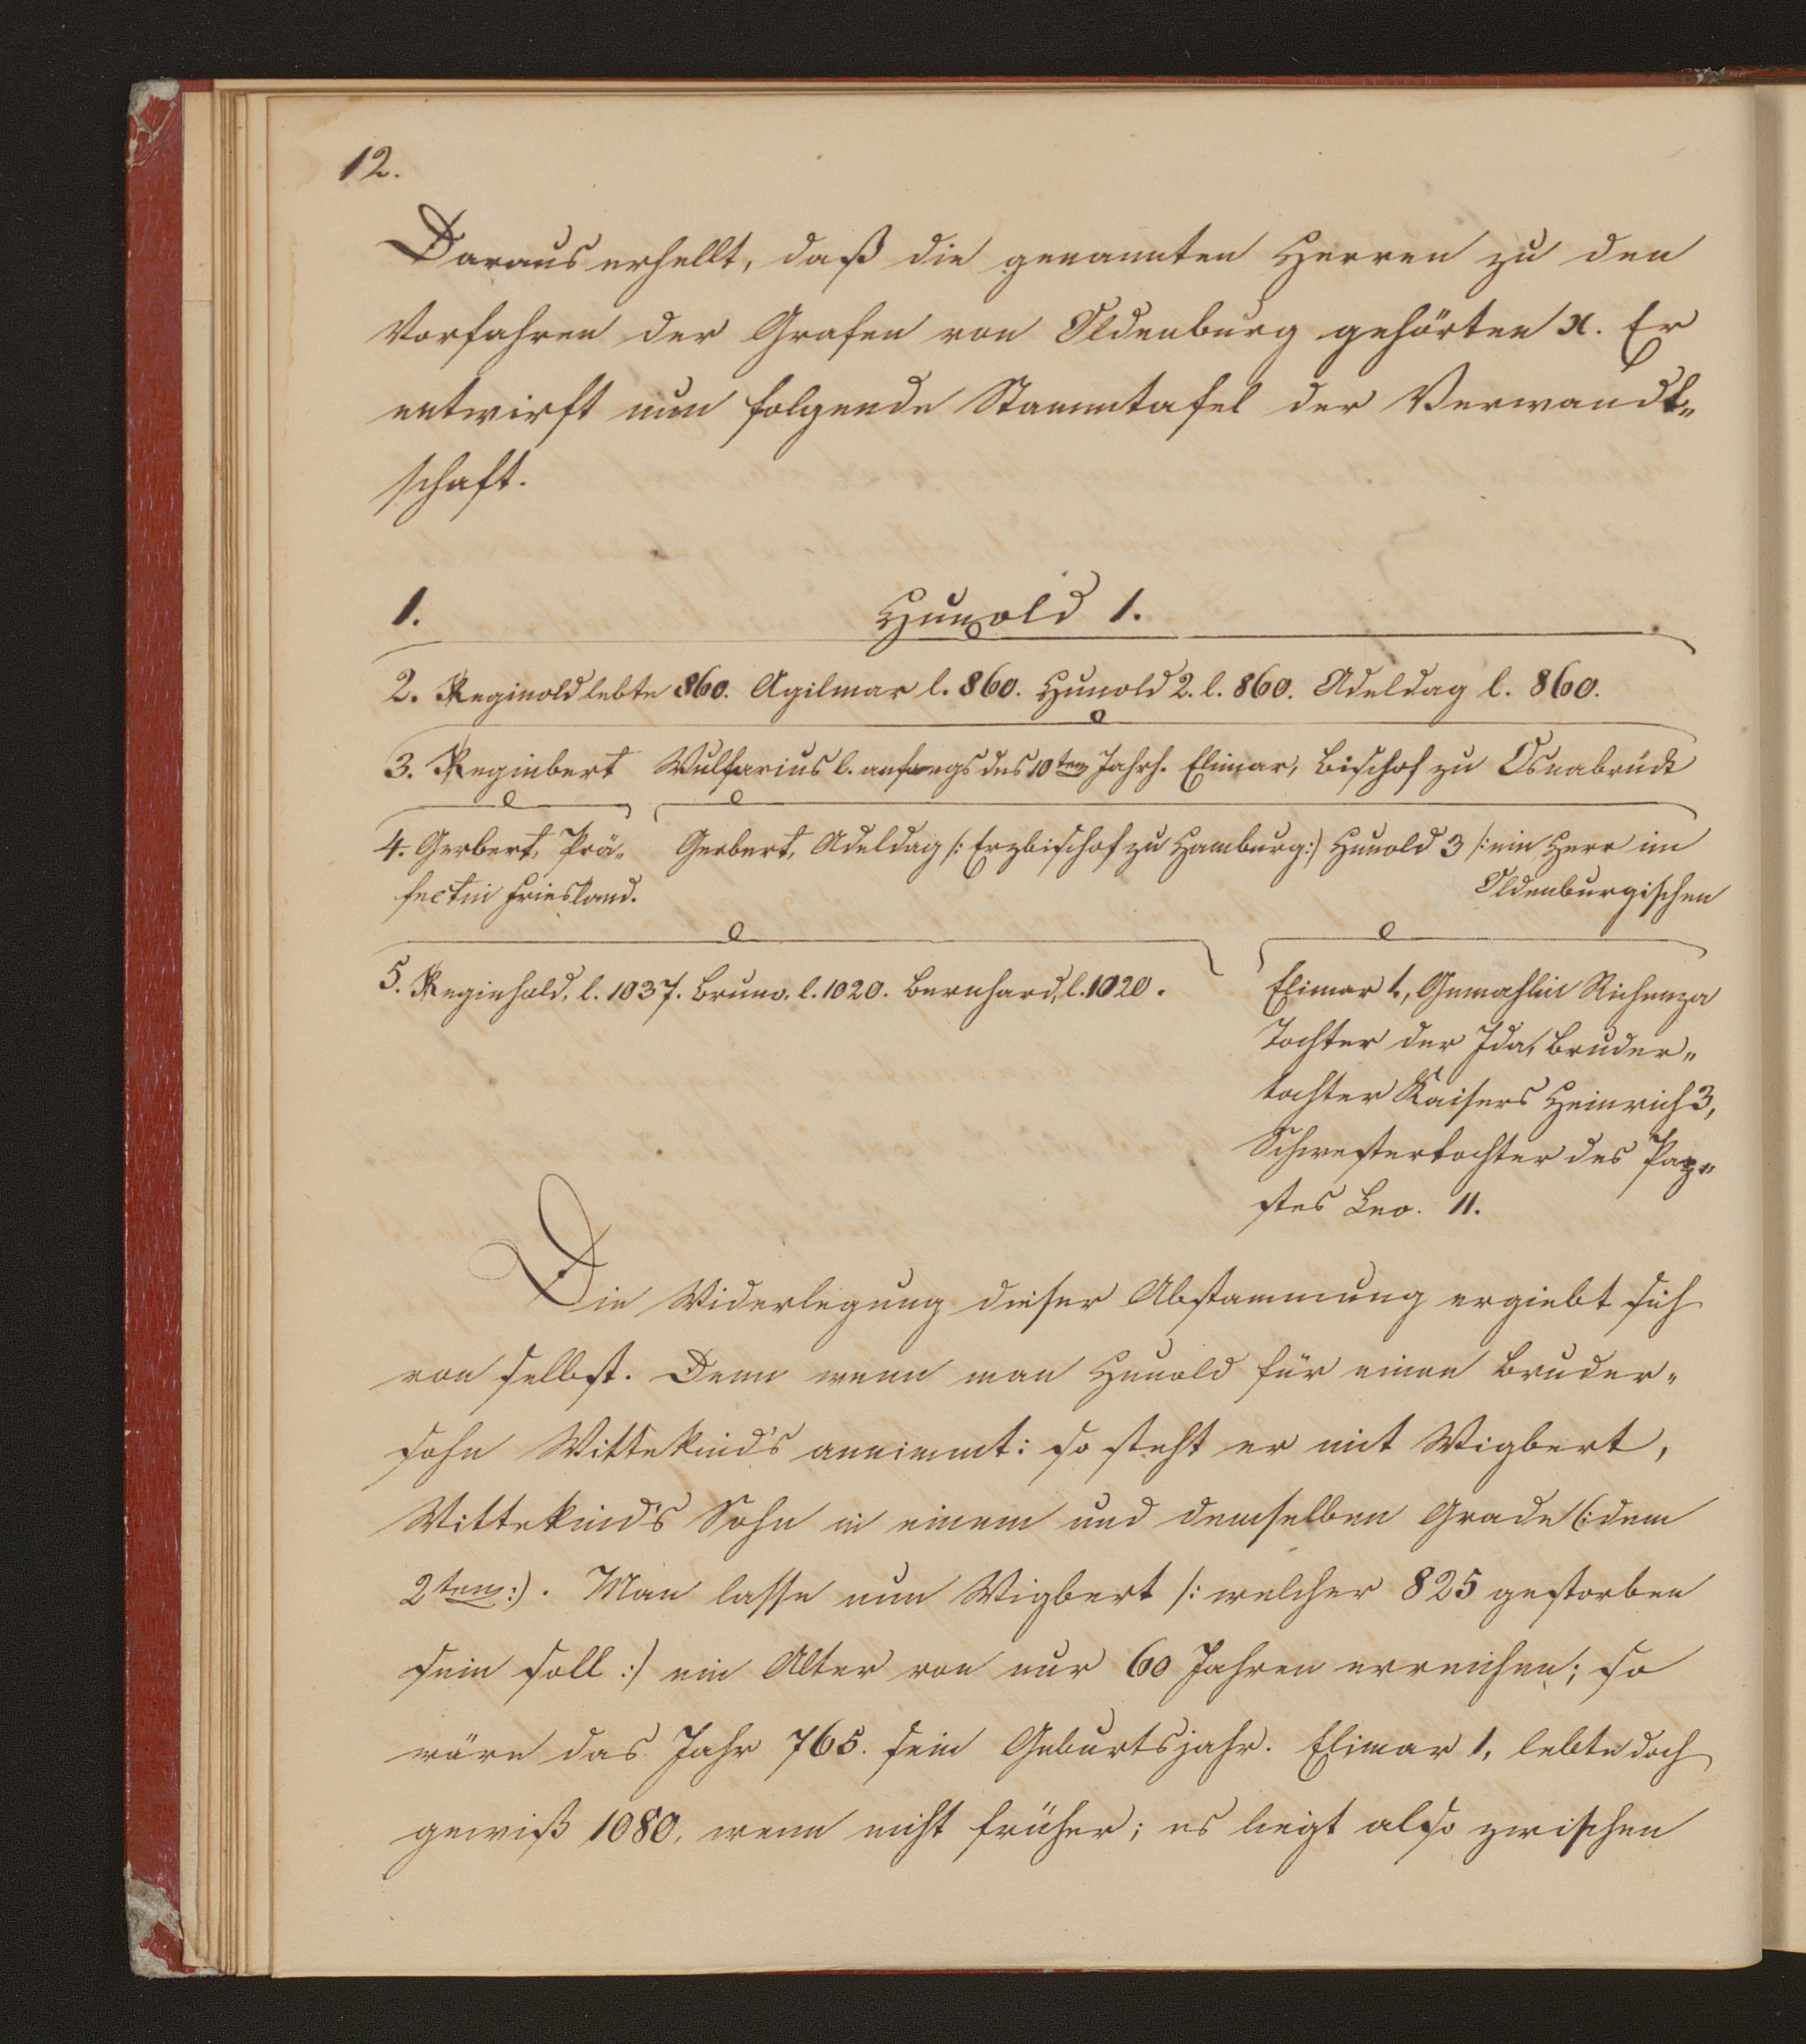 12.
Daraus erhellt, daß die genannten Herren zu den
Vorfahren der Grafen von Oldenburg gehörten x. Er
entwirft nun folgende Stammtafel der Verwandt„
schaft.
1. Hunold 1.
2. Reginold lebte 860. Agilmar l. 860. Hunold 2. l. 860. Adeldag l. 860.
3. Reginbert Wulfarius l. anfangs des 10ten Jahrh. Elimar, Bischof zu Osnabrück
4. Gerbert, Prä„ Gerbert, Adeldag /: Erzbischof zu Hamburg:/ Hunold 3 /: ein Herr im
fect in Friesland. Oldenburgischen
5. Reginhold, l. 1037. Bruno. l. 1020. Bernhard, l. 1020. Elimar 1., Gemahlin Richenza
Tochter der Ida, Bruder„
tochter Kaisers Heinrich 3,
Schwestertochter des Pap„
stes Leo. 11.
Die Widerlegung dieser Abstammung ergiebt sich
von selbst. Denn wenn man Hunold für einen Bruder„
sohn Wittekind's annimmt: so steht er mit Wigbert,
Wittekind's Sohn in einem und demselben Grade (: dem
2ten :). Man lasse nun Wigbert /: welcher 825 gestorben
sein soll :/ ein Alter von nur 60 Jahren erreichen; so
wäre das Jahr 765. sein Geburtsjahr. Elimar 1, lebte doch
gewiß 1080, wenn nicht früher; es liegt also zwischen